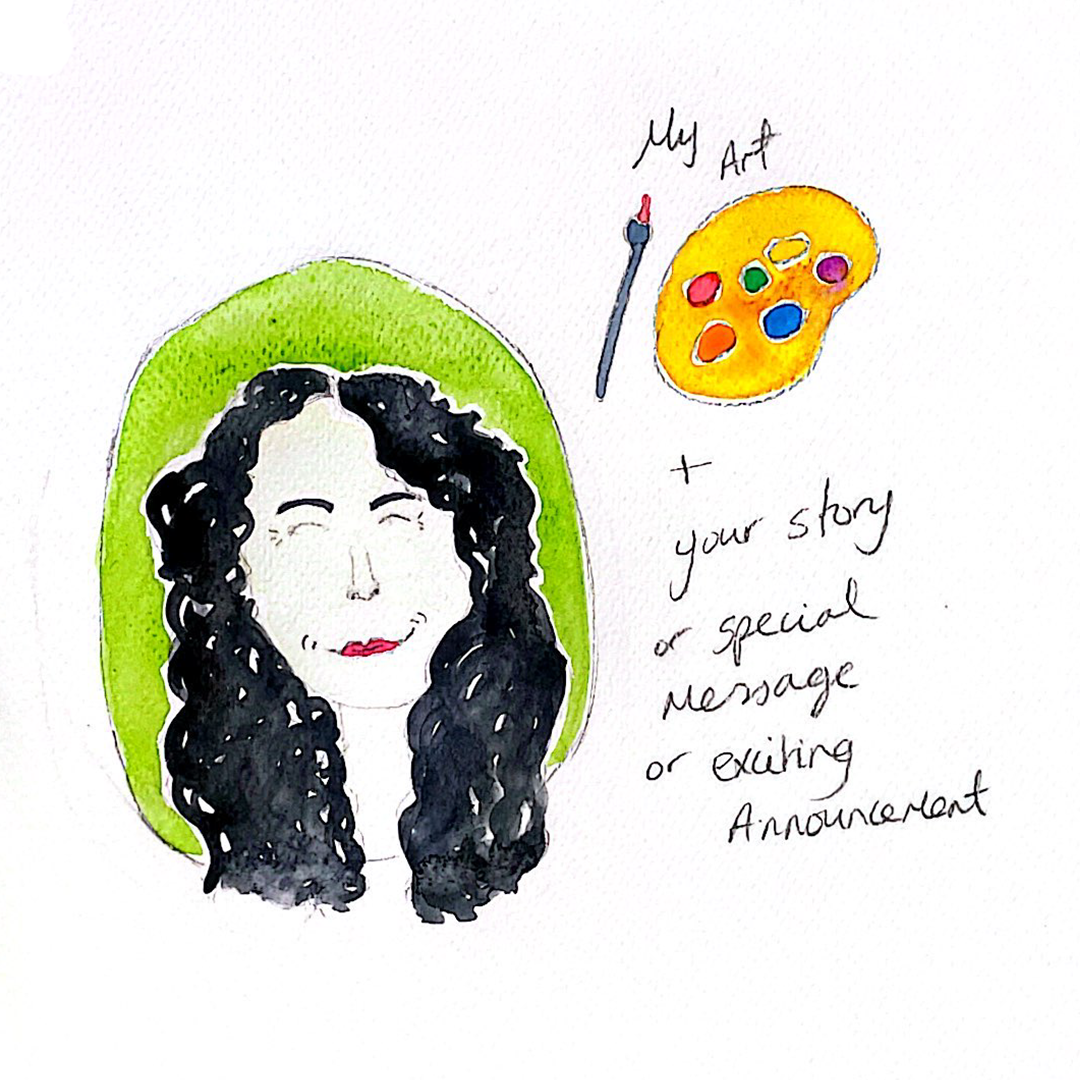 My Art
+
your story
or special
Message
or exciting
Announcement